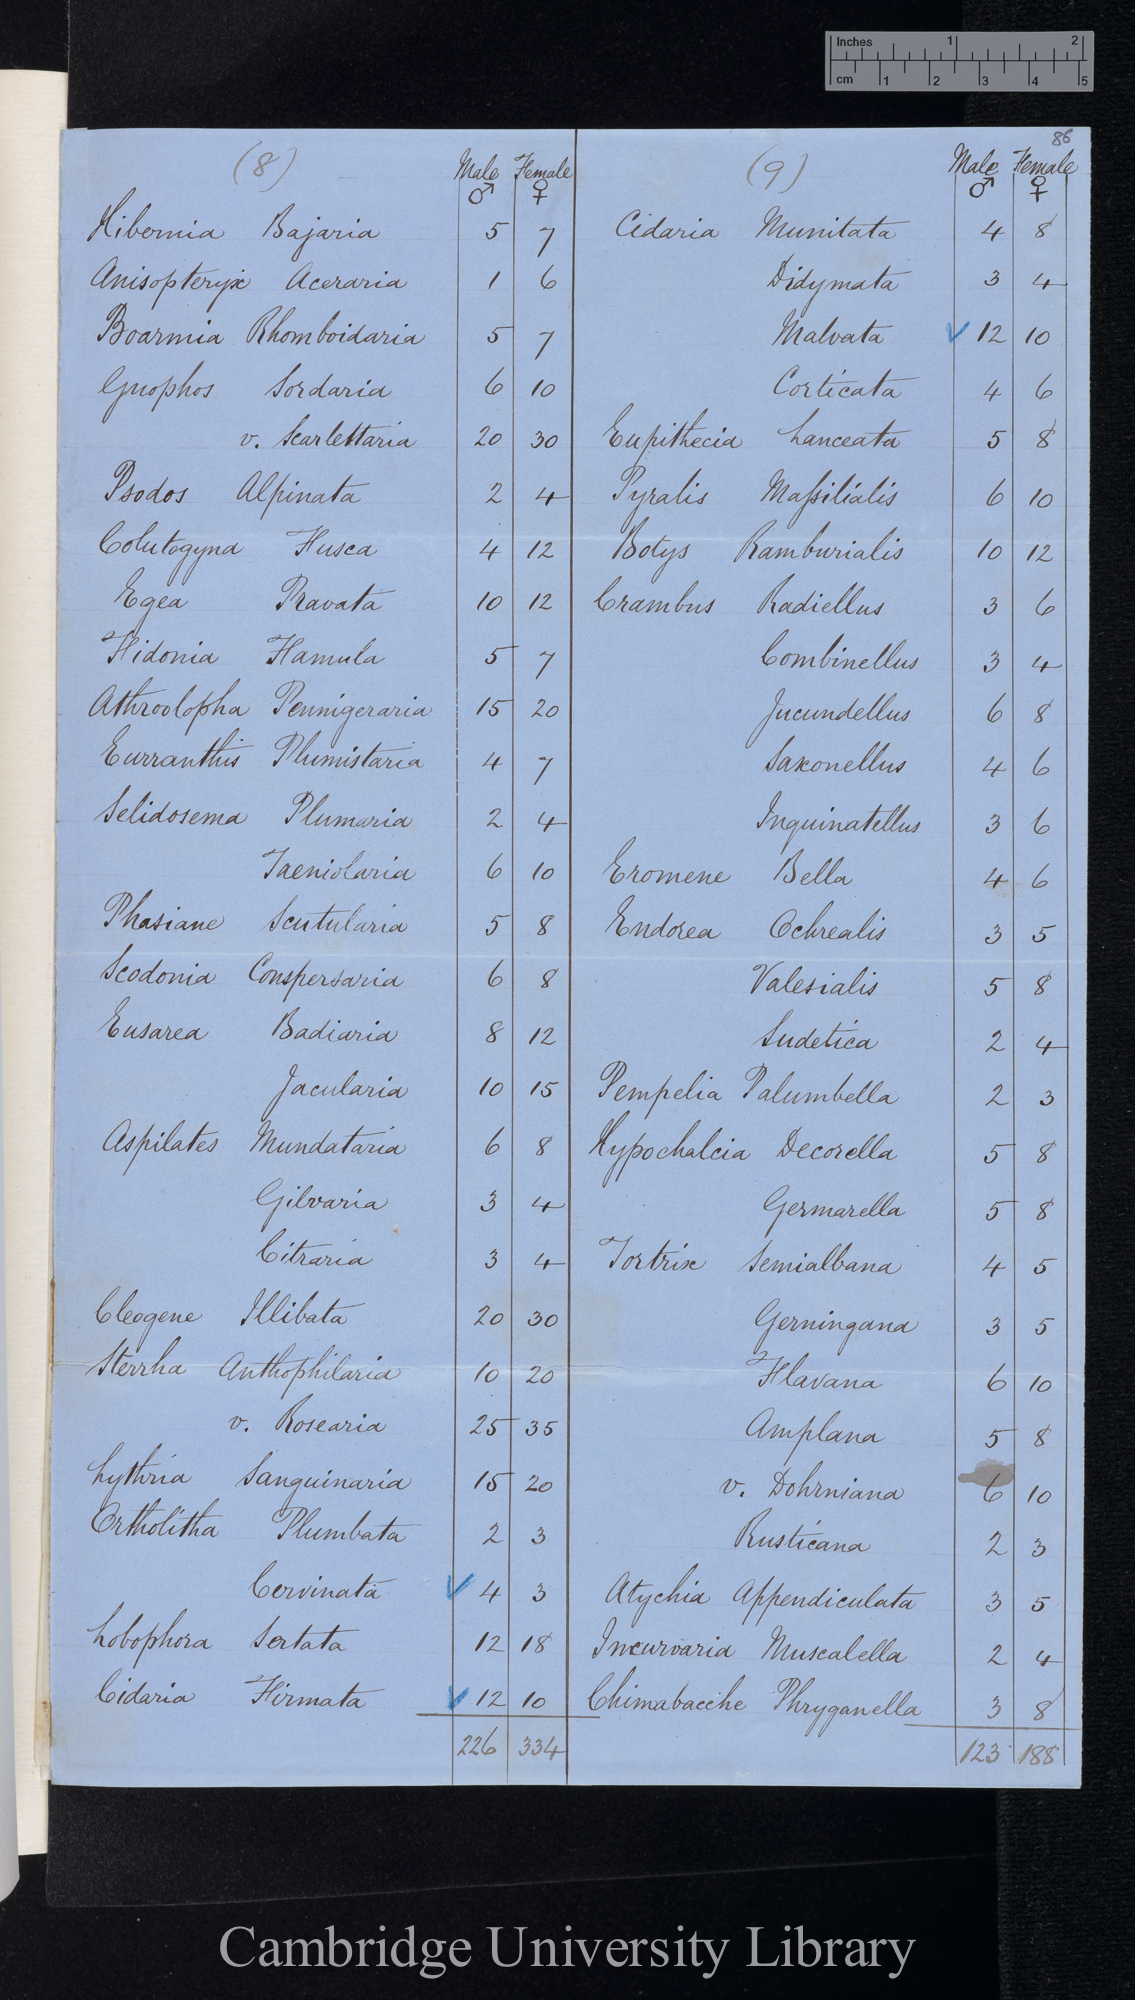 Inches 1 2
cm 1 2 3 4 5
86
(8) Male Female
♂ ♀
Hibernia Bajaria 5 7
Anisopteryx Aceraria 1 6
Boarmia Rhomboidaria 5 7
Gnophos Sordaria 6 10
v. Scarlettaria 20 30
Psodos Alpinata 2 4
Colutogyna Fusca 4 12
Egea Pravata 10 12
Fidonia Famula 5 7
Athroolopha Pennigeraria 15 20
Eurranthis Plumistaria 4 7
Selidosema Plumaria 2 4
Taeniolaria 6 10
Phasiane Scutularia 5 8
Scodonia Conspersaria 6 8
Eusarea Badiaria 8 12
Jacularia 10 15
Aspilates Mundataria 6 8
Gilvaria 3 4
Citraria 3 4
Cleogene Illibata 20 30
Sterrha Anthophilaria 10 20
v. Rosearia 25 35
Lythria Sanguinaria 15 20
Ortholitha Plumbata 2 3
Cervinata ✓ 4 3
Lobophora Sertata 12 18
Cidaria Firmata ✓ 12 10
226 334
(9) Male Female
♂ ♀
Cidaria Munitata 4 8
Didymata 3 4
Malvata ✓ 12 10
Corticata 4 6
Eupithecia Lanceata 5 8
Pyralis Massilialis 6 10
Botys Ramburialis 10 12
Crambus Radiellus 3 6
Combinellus 3 4
Jucundellus 6 8
Saxonellus 4 6
Inquinatellus 3 6
Eromene Bella 4 6
Endorea Ochrealis 3 5
Valesialis 5 8
Sudetica 2 4
Pempelia Palumbella 2 3
Hypochalcia Decorella 5 8
Germarella 5 8
Tortrix Semialbana 4 5
Gerningana 3 5
Flavana 6 10
Amplana 5 8
v. Dohrniana 6 10
Rusticana 2 3
Atychia Appendiculata 3 5
Incurvaria Muscalella 2 4
Chimabacche Phryganella 3 8
123 188
Cambridge University Library